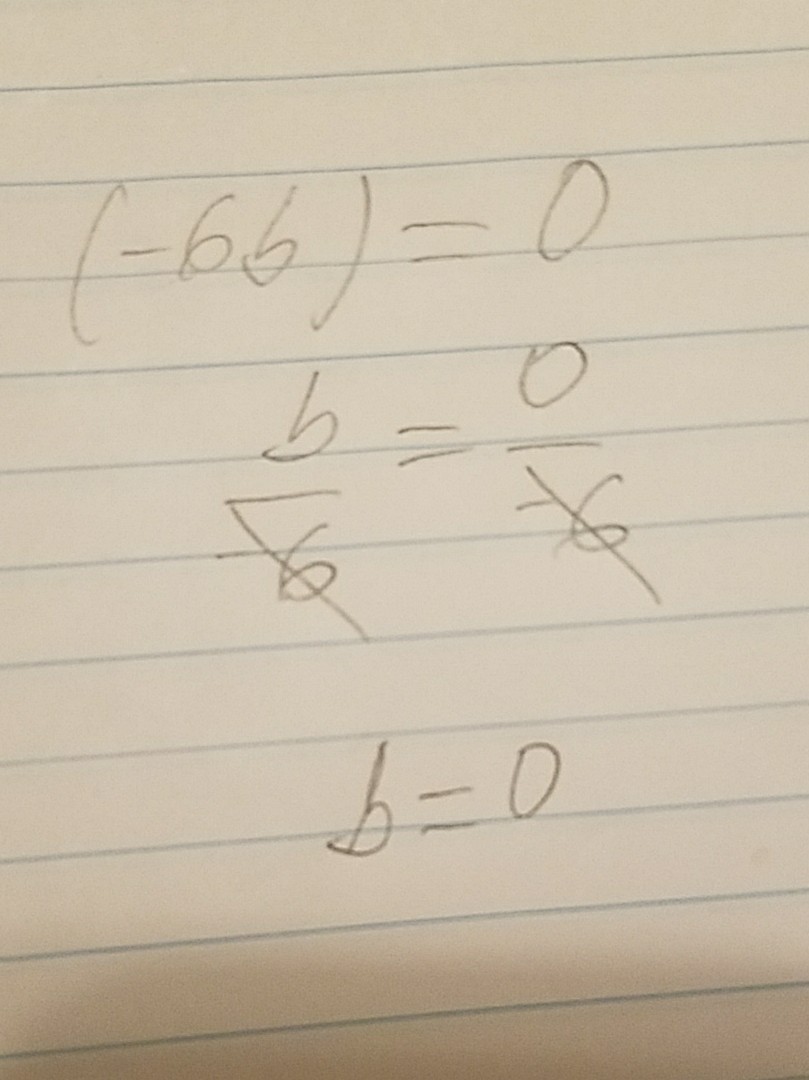 (-6b) = 0
b/-6 = 0/-6
b = 0